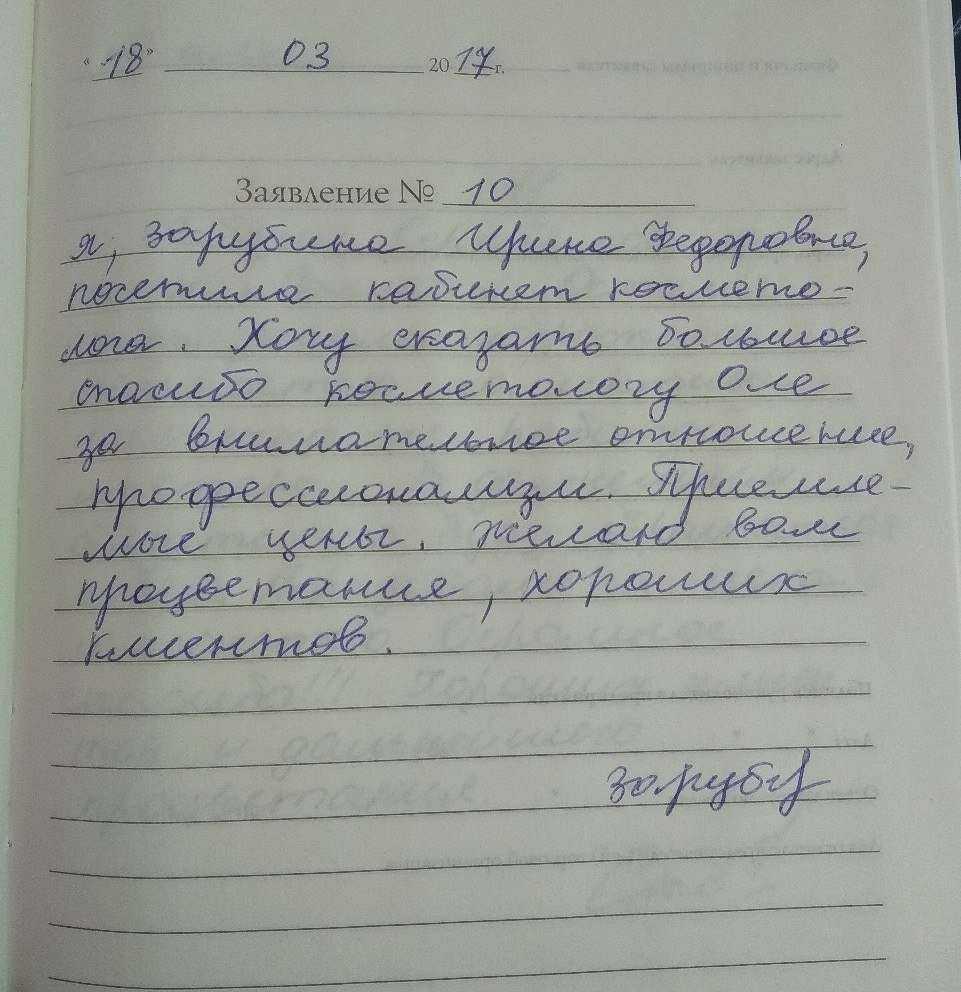 "18" 03 2017 г.
Заявление № 10
я, Зарубина Ирина Федоровна,
посетила кабинет космето-
лога. Хочу сказать большое
спасибо косметологу Оле
за внимательное отношение,
профессионализм. Приемле-
мые цены. Желаю вам
процветания, хороших
клиентов.
Заруб